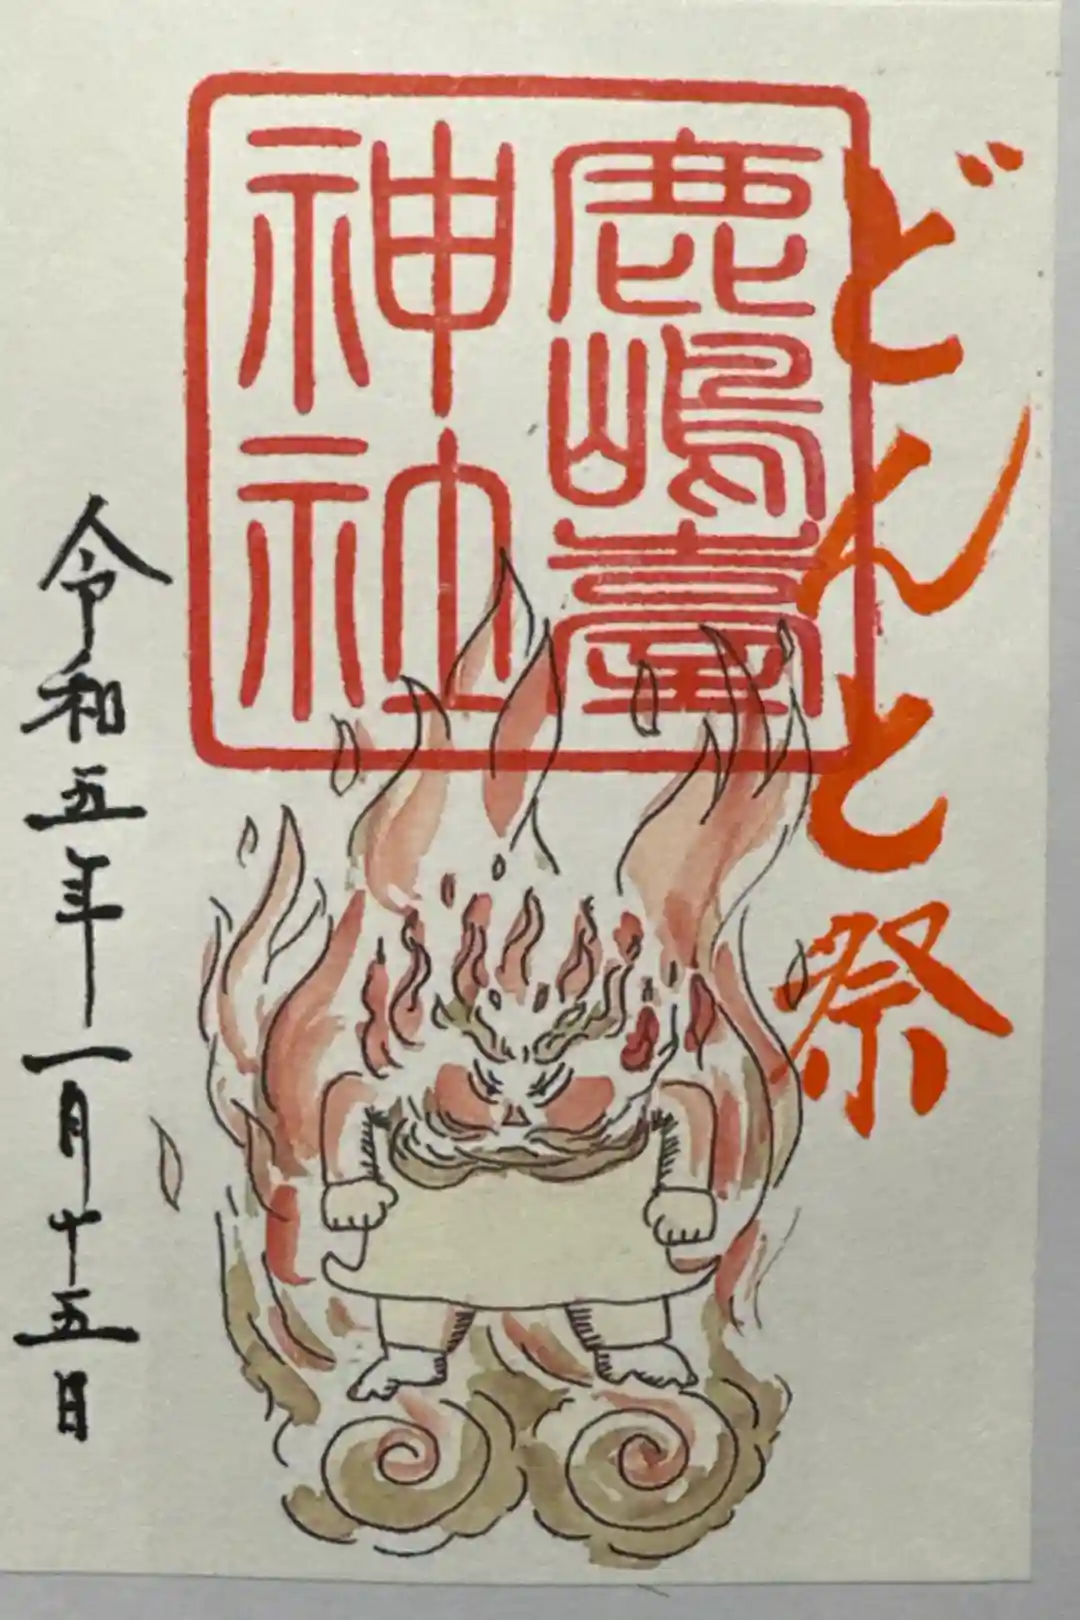 どんと祭
鹿嶋臺
神社
令和五年一月十五日